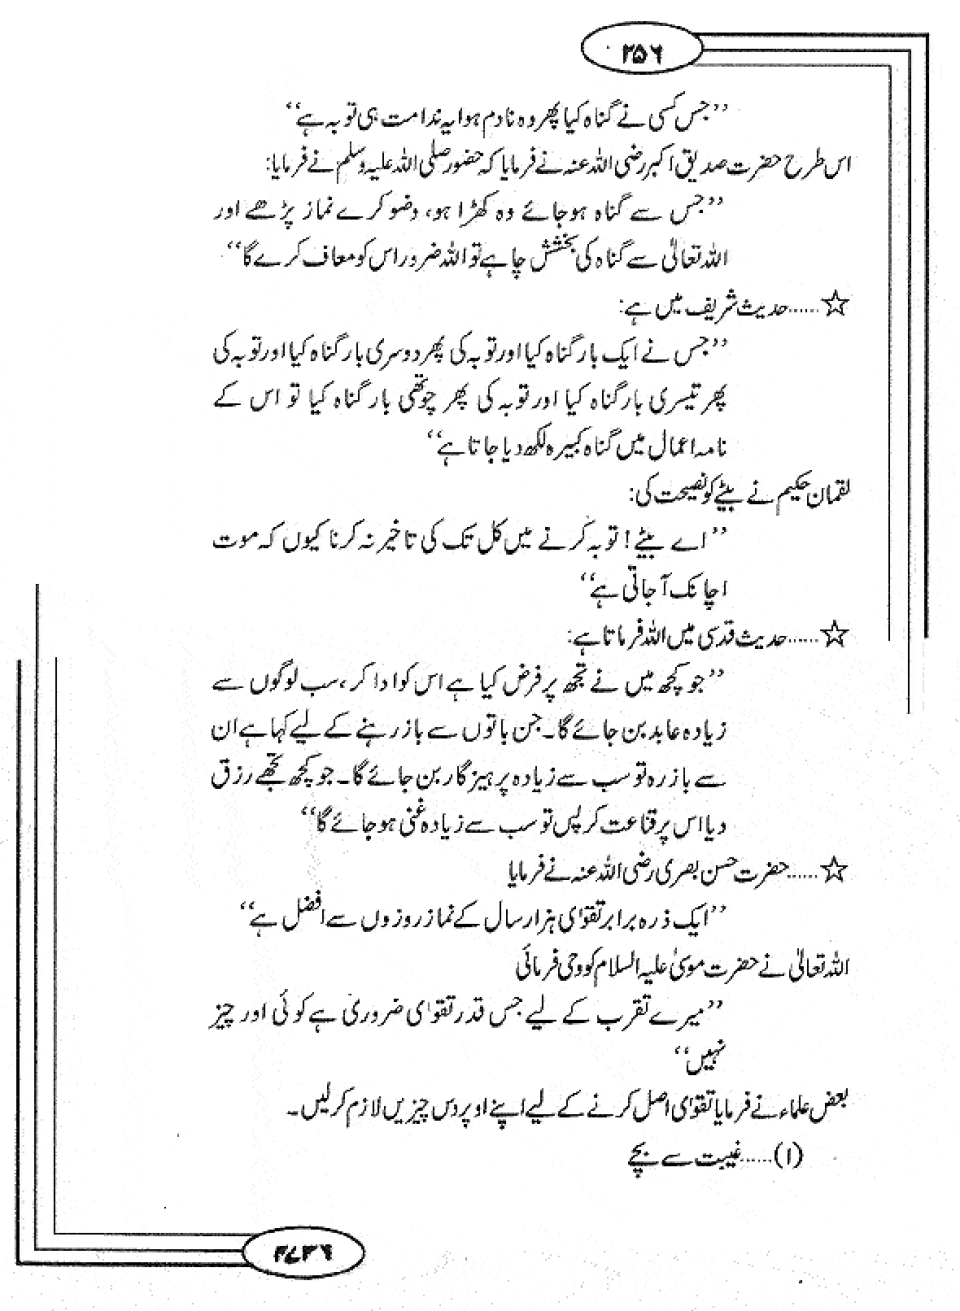 ۲۵۶
’’جس کسی نے گناہ کیا پھر وہ نادم ہوا یہ ندامت ہی توبہ ہے‘‘
اس طرح حضرت صدیق اکبر رضی اللہ عنہ نے فرمایا کہ حضور صلی اللہ علیہ وسلم نے فرمایا:
’’جس سے گناہ ہوجائے وہ کھڑا ہو، وضو کرے نماز پڑھے اور
اللہ تعالیٰ سے گناہ کی بخشش چاہے تو اللہ ضرور اس کو معاف کرے گا‘‘
☆......حدیث شریف میں ہے:
’’جس نے ایک بار گناہ کیا اور توبہ کی پھر دوسری بار گناہ کیا اور توبہ کی
پھر تیسری بار گناہ کیا اور توبہ کی پھر چوتھی بار گناہ کیا تو اس کے
نامہ اعمال میں گناہ کبیرہ لکھ دیا جاتا ہے‘‘
لقمان حکیم نے بیٹے کو نصیحت کی:
’’اے بیٹے! توبہ کرنے میں کل تک کی تاخیر نہ کرنا کیوں کہ موت
اچانک آجاتی ہے‘‘
☆......حدیث قدسی میں اللہ فرماتا ہے:
’’جو کچھ میں نے تجھ پر فرض کیا ہے اس کو ادا کر، سب لوگوں سے
زیادہ عابد بن جائے گا۔ جن باتوں سے باز رہنے کے لیے کہا ہے ان
سے باز رہ تو سب سے زیادہ پرہیزگار بن جائے گا۔ جو کچھ تجھے رزق
دیا اس پر قناعت کر پس تو سب سے زیادہ غنی ہوجائے گا‘‘
☆......حضرت حسن بصری رضی اللہ عنہ نے فرمایا
’’ایک ذرہ برابر تقوٰی ہزار سال کے نماز روزوں سے افضل ہے‘‘
اللہ تعالیٰ نے حضرت موسیٰ علیہ السلام کو وحی فرمائی
’’میرے تقرب کے لیے جس قدر تقوٰی ضروری ہے کوئی اور چیز
نہیں‘‘
بعض علماء نے فرمایا تقوٰی اصل کرنے کے لیے اپنے اوپر دس چیزیں لازم کرلیں۔
(۱)......غیبت سے بچے